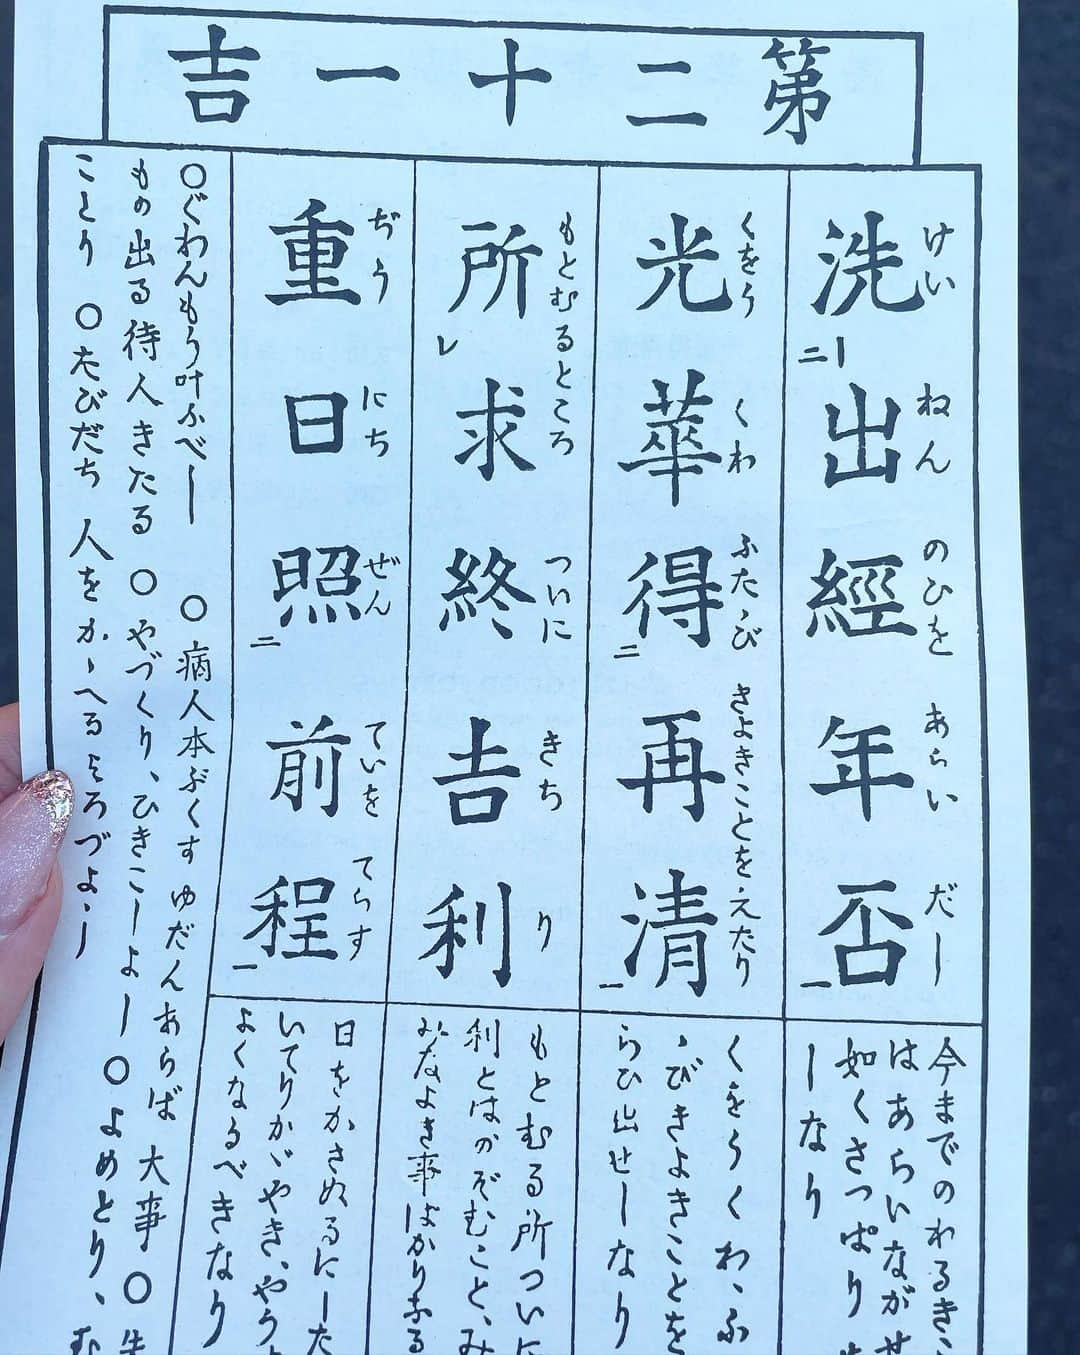 第二十一吉
洗出經年否
けいねんのひをあらいだし
光華得再清
くをうくわふたゝびきよきことをえたり
所求終吉利
もとむるところついにきちり
重日照前程
ぢうにちぜんていをてらす
二一
二一
レ
二一
今までのわるきこ
はあらいながせ
如くさつぱり
しなり
くをうくわ、ふ
ゝびきよきことを
らひ出せしなり
もとむる所ついに
利とはのぞむこと、み
みなよき事ばかりなる
日をかさぬるにした
いてりかゞやき、やう
よくなるべきなり
○ぐわんもう叶ふべし ○病人本ぶくすゆだんあらば大事○
もの出る待人きたる ○やづくり、ひきこしよし ○よめとり、む
ことり ○たびだち人をかゝへるよろづよし